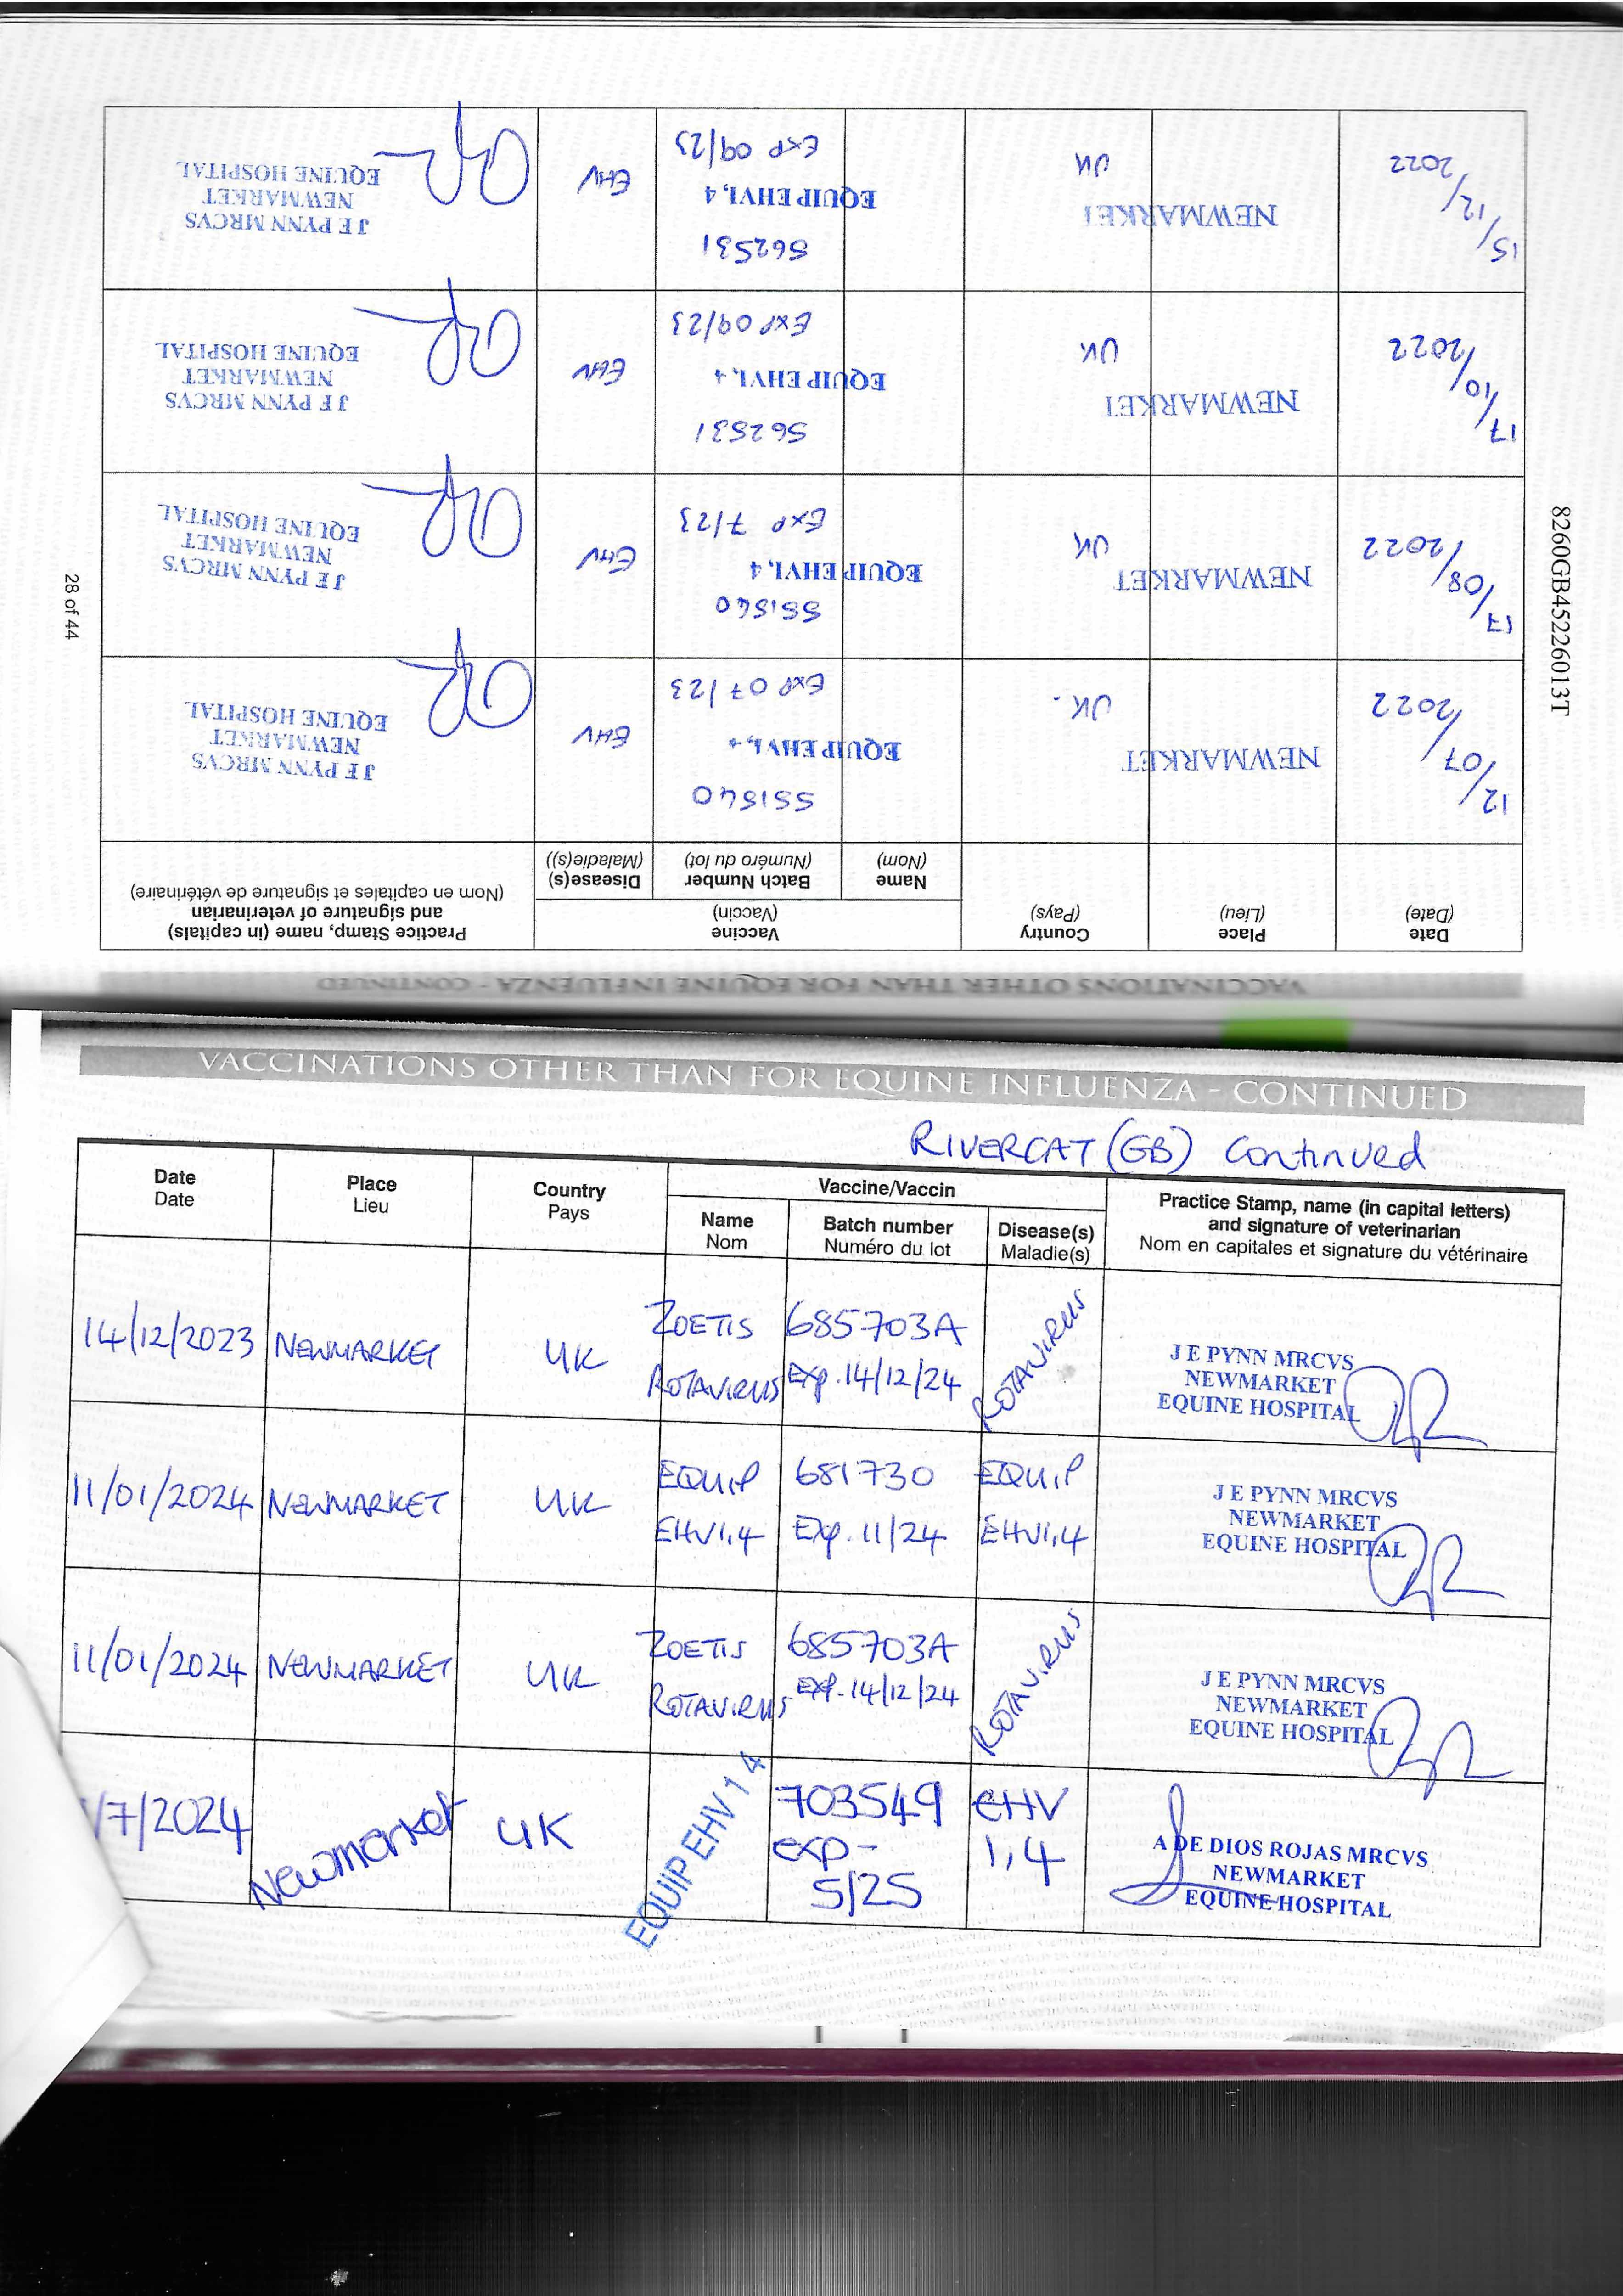 VACCINATIONS OTHER THAN FOR EQUINE INFLUENZA - CONTINUED
Date
(Date)
Place
(Lieu)
Country
(Pays)
Vaccine
(Vaccin)
Name
(Nom)
Batch Number
(Numéro du lot)
Disease(s)
(Maladie(s))
Practice Stamp, name (in capitals)
and signature of veterinarian
(Nom en capitales et signature de vétérinaire)
12/07/2022
NEWMARKET
UK.
551540
EQUIP EHV1,4
EXP 07/23
EHV
J E PYNN MRCVS
NEWMARKET
EQUINE HOSPITAL
17/08/2022
NEWMARKET
UK
551540
EQUIP EHV1,4
EXP 7/23
EHV
J E PYNN MRCVS
NEWMARKET
EQUINE HOSPITAL
17/10/2022
NEWMARKET
UK
562531
EQUIP EHV1,4
EXP 09/23
EHV
J E PYNN MRCVS
NEWMARKET
EQUINE HOSPITAL
15/12/2022
NEWMARKET
UK
562531
EQUIP EHV1,4
EXP 09/23
EHV
J E PYNN MRCVS
NEWMARKET
EQUINE HOSPITAL
28 of 44
8260GB45226013T
VACCINATIONS OTHER THAN FOR EQUINE INFLUENZA - CONTINUED
RIVERCAT (GB) Continued
Date
Date
Place
Lieu
Country
Pays
Vaccine/Vaccin
Name
Nom
Batch number
Numéro du lot
Disease(s)
Maladie(s)
Practice Stamp, name (in capital letters)
and signature of veterinarian
Nom en capitales et signature du vétérinaire
14/12/2023
NEWMARKET
UK
ZOETIS
ROTAVIRUS
685703A
Exp. 14/12/24
ROTAVIRUS
J E PYNN MRCVS
NEWMARKET
EQUINE HOSPITAL
11/01/2024
NEWMARKET
UK
EQUIP
EHV1,4
681730
Exp. 11/24
EQUIP
EHV1,4
J E PYNN MRCVS
NEWMARKET
EQUINE HOSPITAL
11/01/2024
NEWMARKET
UK
ZOETIS
ROTAVIRUS
685703A
EXP. 14/12/24
ROTAVIRUS
J E PYNN MRCVS
NEWMARKET
EQUINE HOSPITAL
/7/2024
Newmarket
UK
EQUIP EHV 1 4
703549
exp-
5/25
EHV
1,4
A DE DIOS ROJAS MRCVS
NEWMARKET
EQUINE HOSPITAL